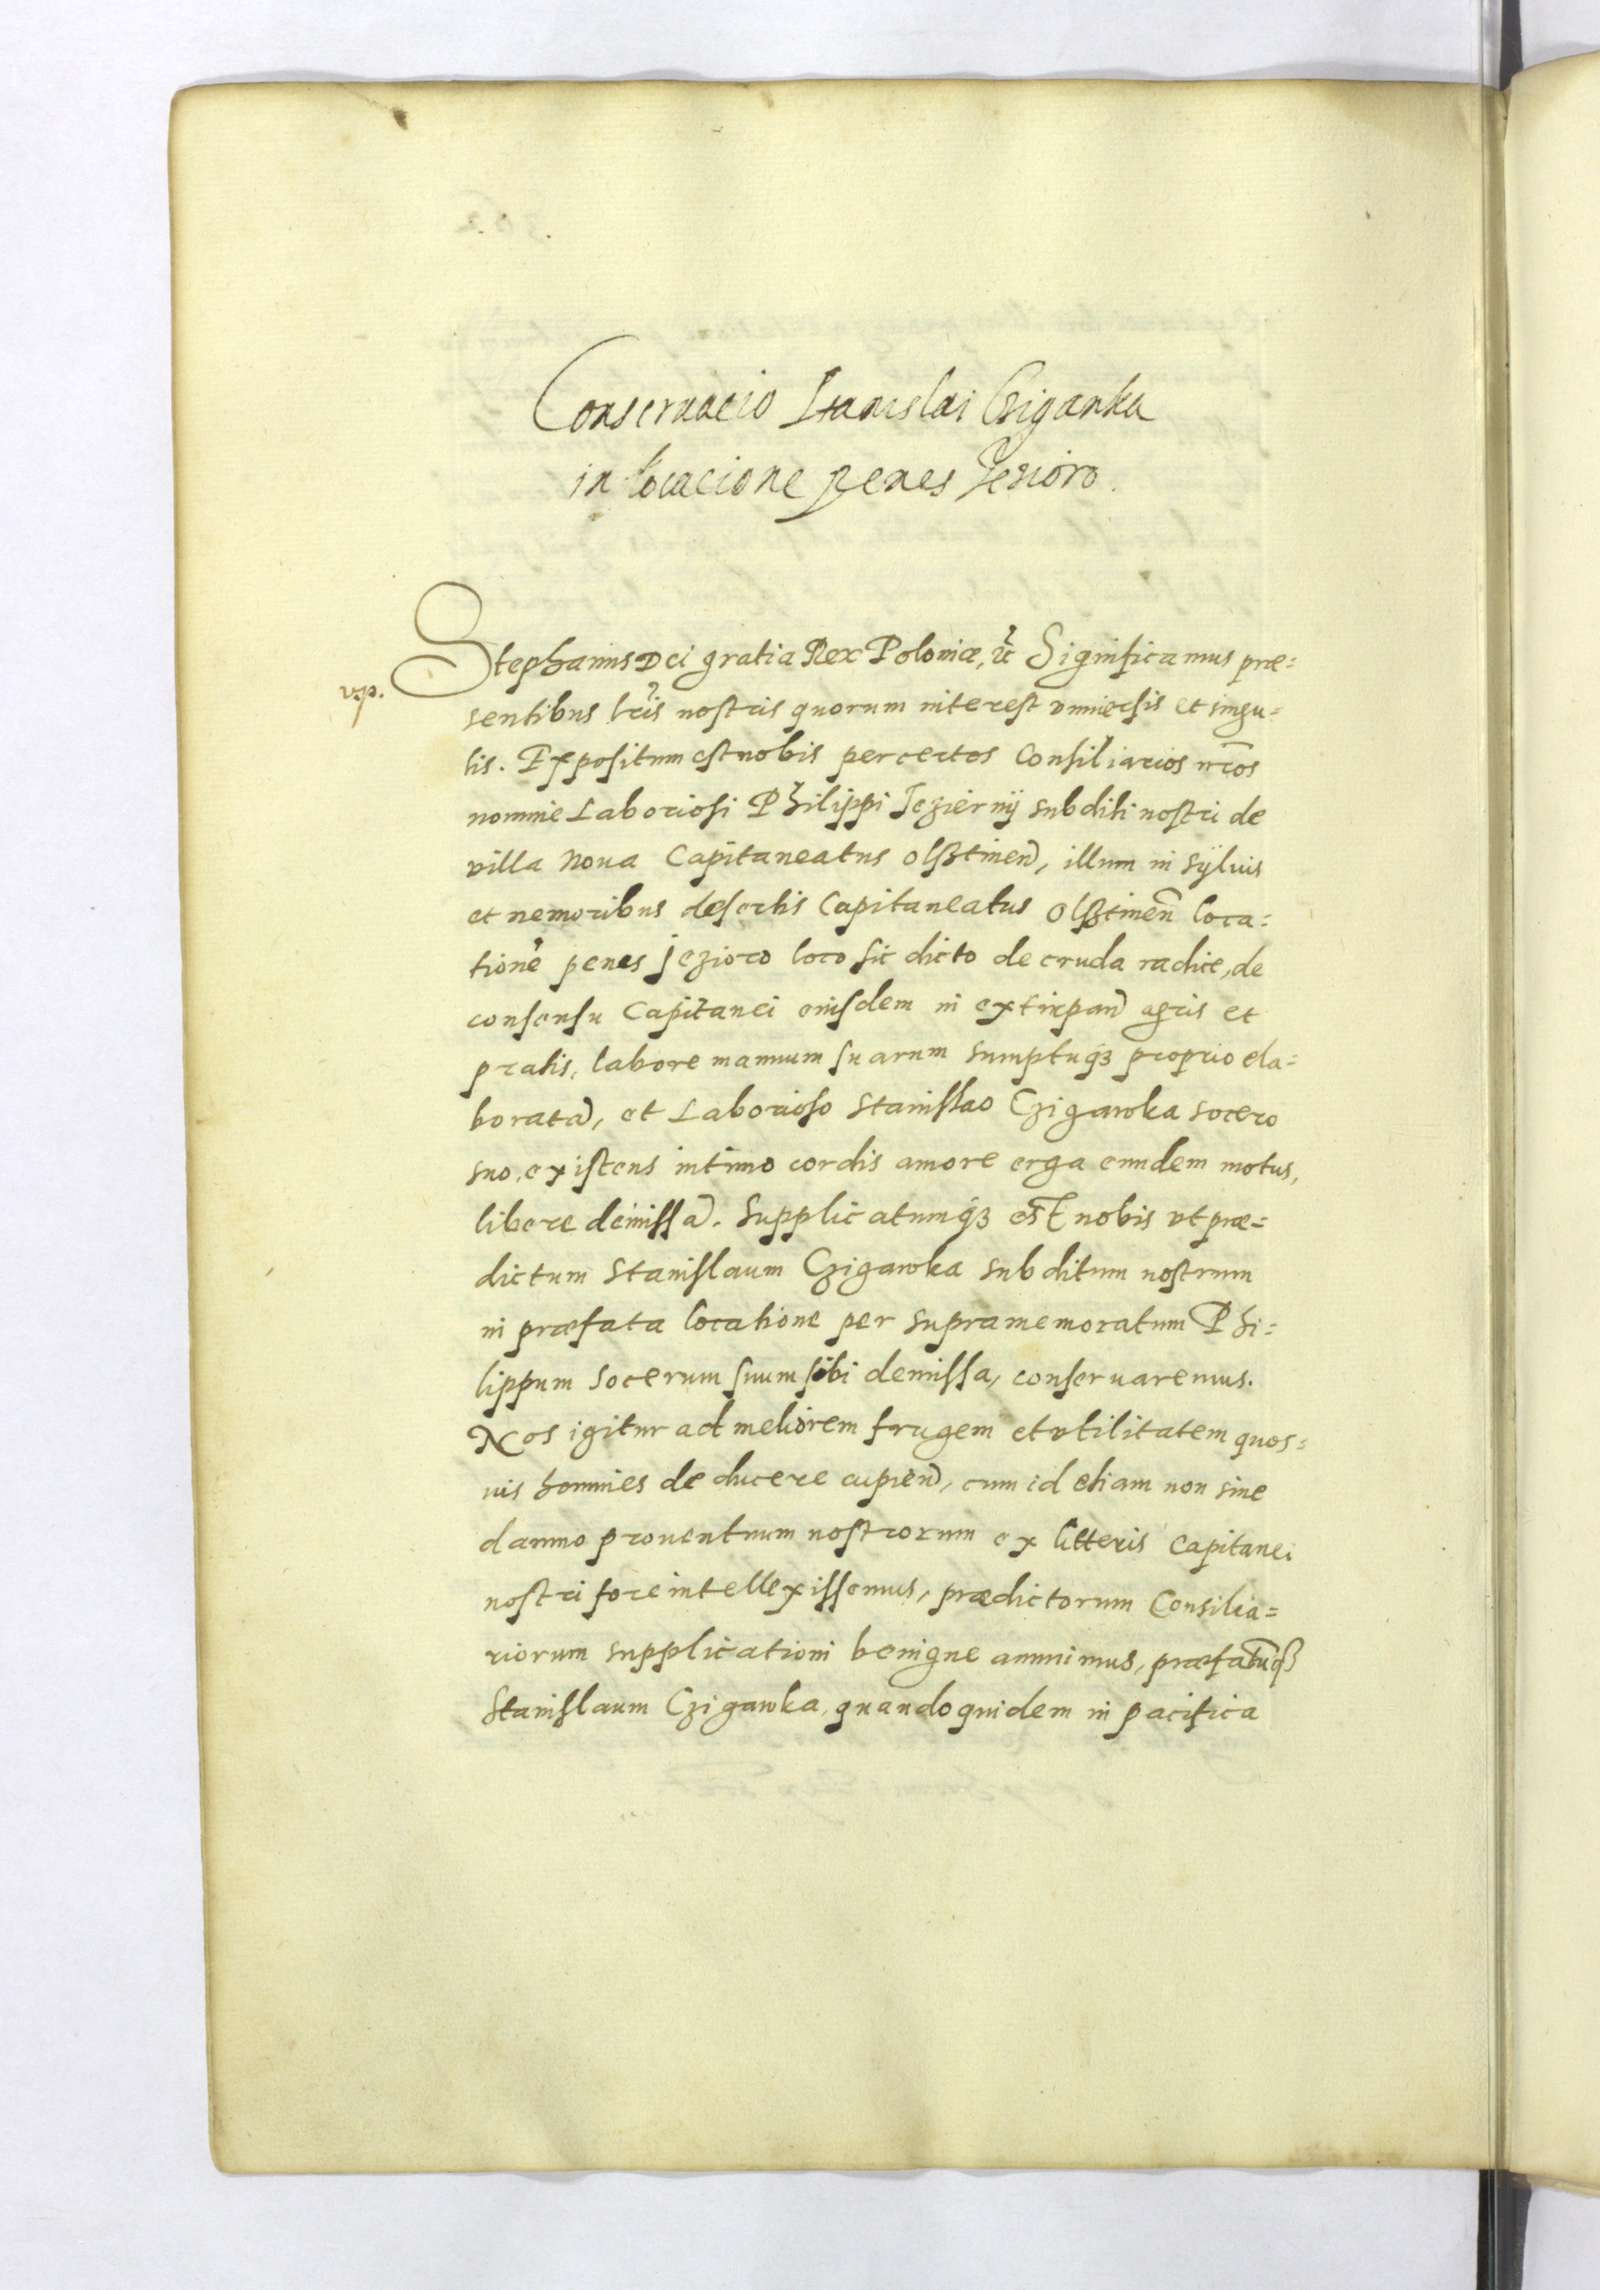 Conseruacio Stanislai Czigawka
in locacione penes Jezioro.
Stephanus Dei gratia Rex Poloniæ, &c Significamus præ=
sentibus lr̃is nostris quorum interest vniuersis et singu=
lis. Expositum est nobis per certos Consiliarios nr̃os
nomine Laboriosi Philippi Jeziernij subditi nostri de
villa Noua Capitaneatus Olsztinen̄, illum in syluis
et nemoribus desertis Capitaneatus Olsztinen̄ loca=
tionē penes Jezioro loco sic dicto de cruda radice, de
consensu Capitanei eiusdem in extirpan̄ agris et
pratis, labore manuum suarum sumptuq3 proprio ela=
boratā, et Laborioso Stanislao Czigawka socero
suo, existens intimo cordis amore erga eundem motus,
libere demissā. Supplicatumq3 est nobis vt præ=
dictum Stanislaum Czigawka subditum nostrum
in præfata locatione per supramemoratum Phi=
lippum socerum suum sibi demissa, conseruaremus.
Nos igitur ad meliorem frugem et vtilitatem quos=
uis homines deducere cupien̄, cum id etiam non sine
damno prouentuum nostrorum ex litteris Capitanei
nostri fore intellexissemus, prædictorum Consilia=
riorum supplicationi benigne annuimus, præfatūq3
Stanislaum Czigawka, quandoquidem in pacifica